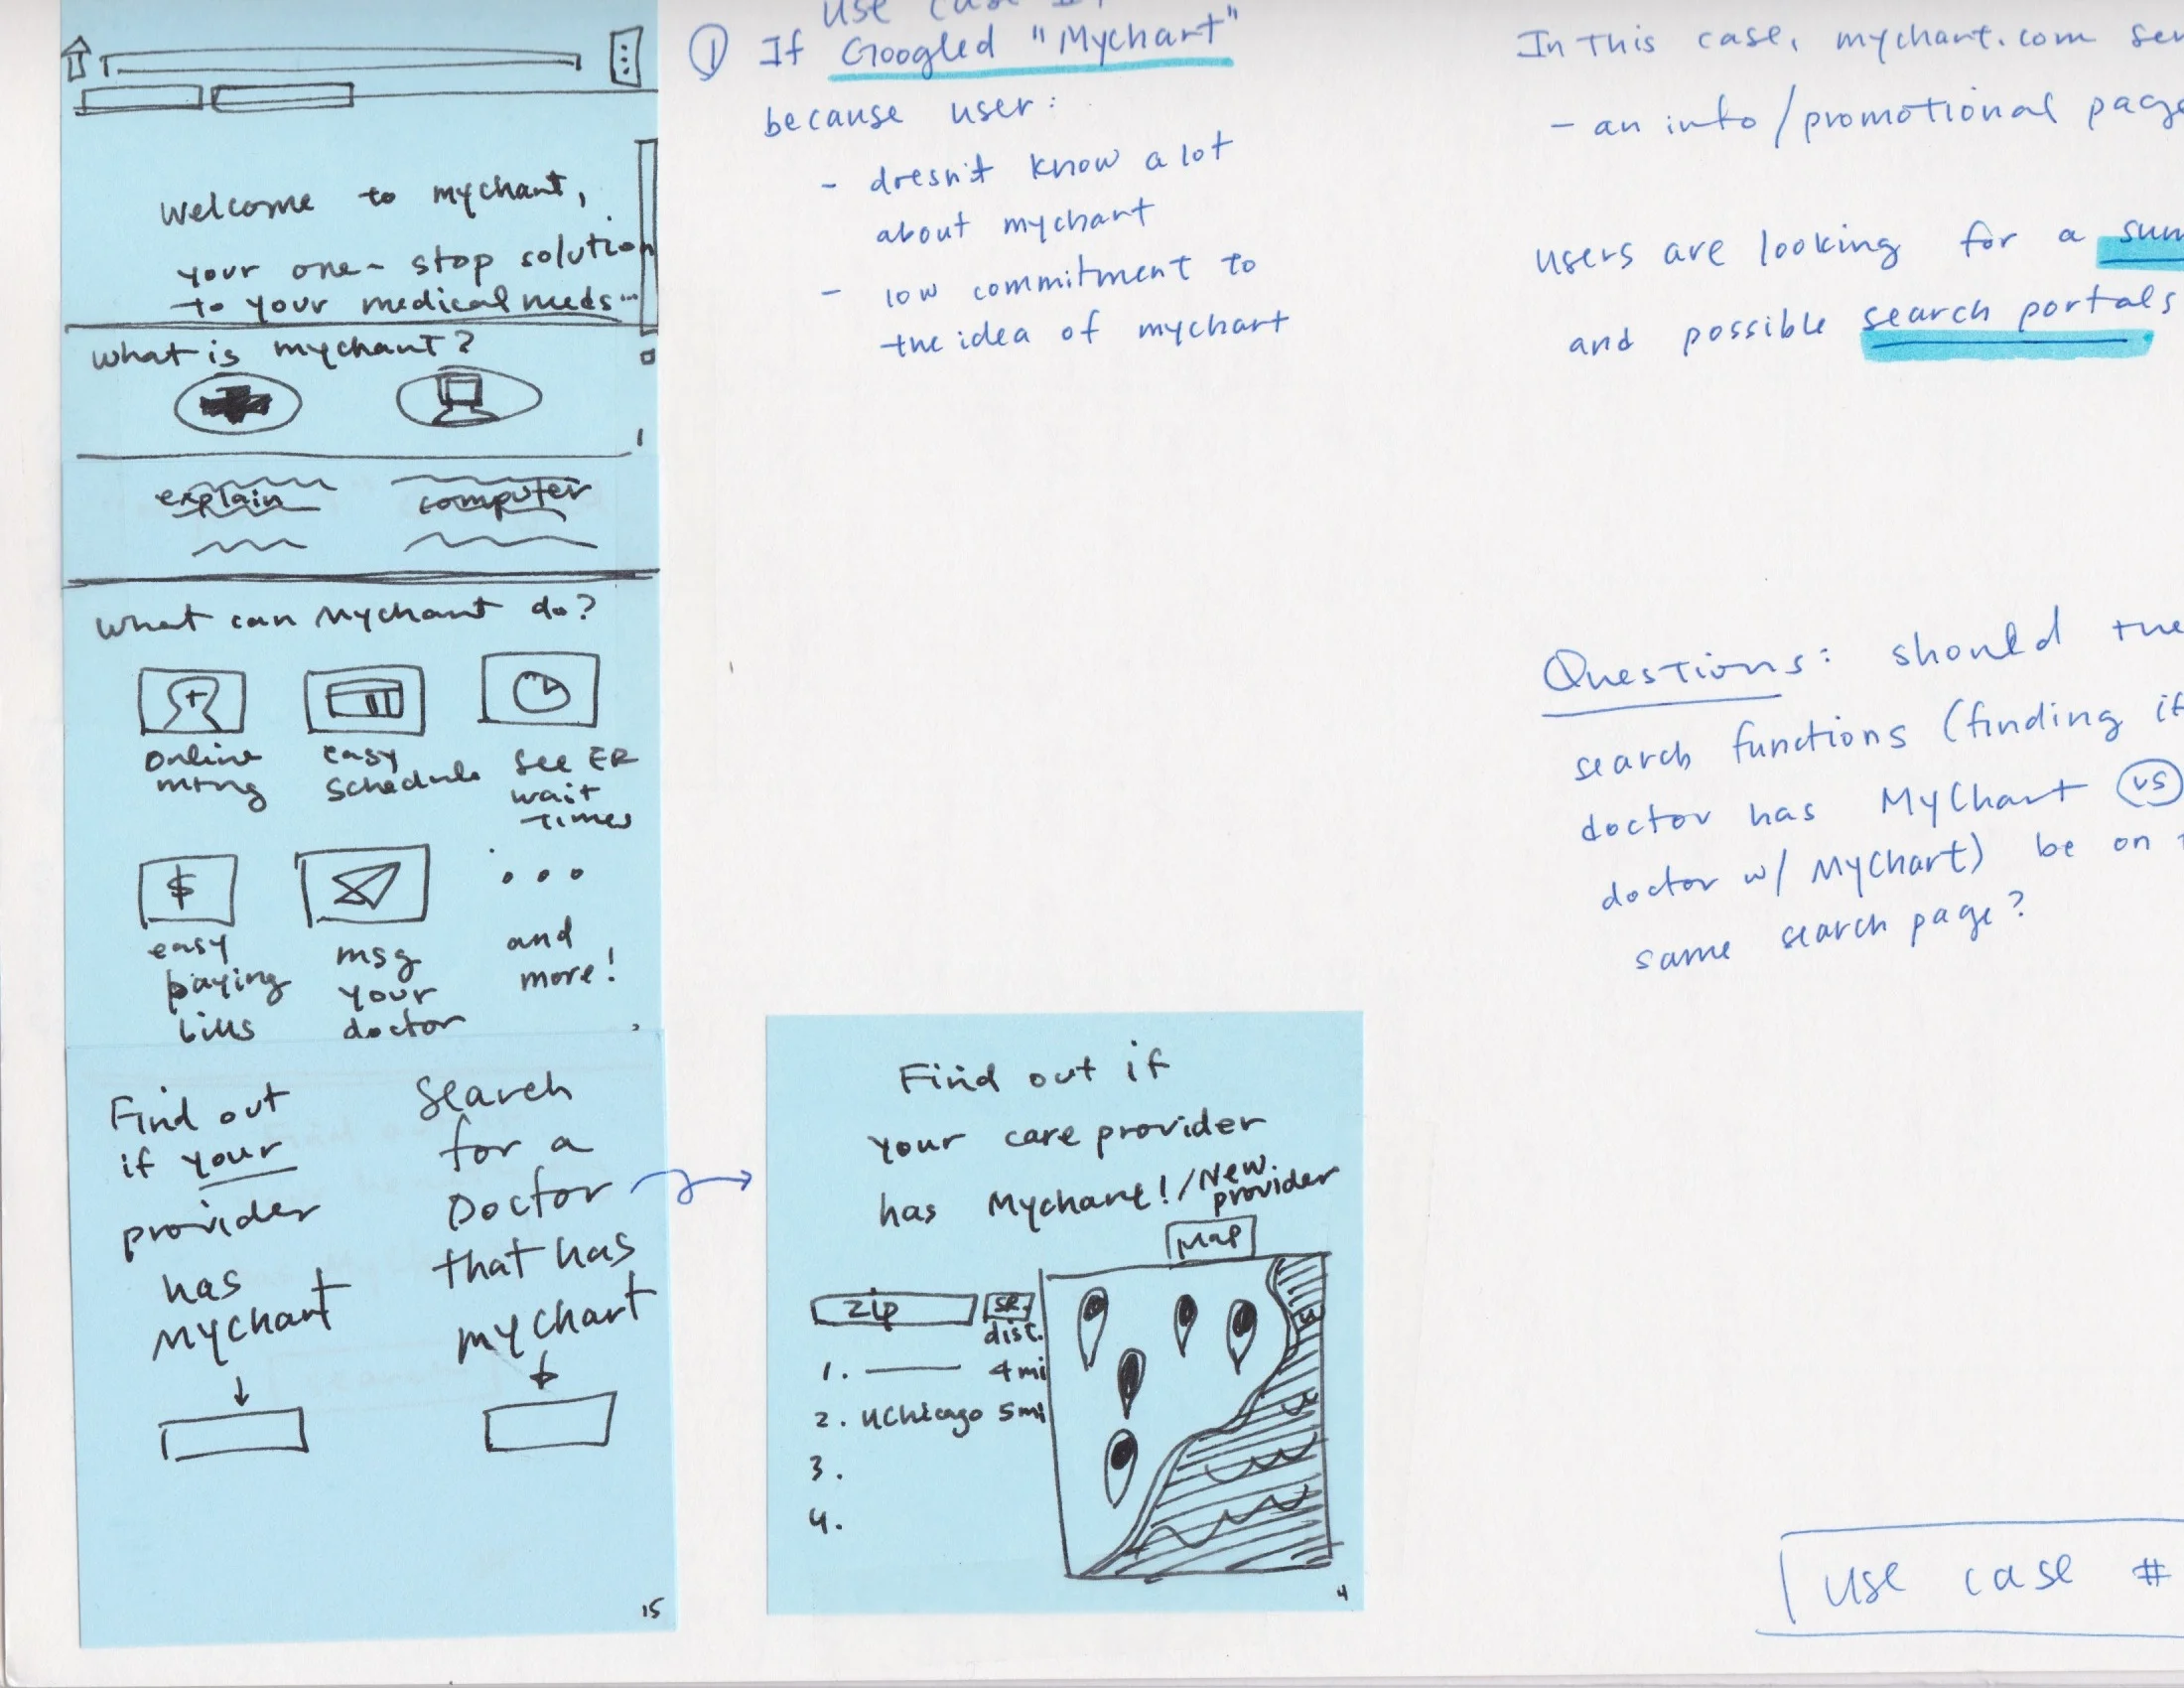 Welcome to mychart,
your one-stop solution
to your medical needs...
What is mychart?
0
1
explain
computer
What can Mychart do?
online
mtng
easy
schedule
see ER
wait
times
$
easy
paying
bills
msg
your
doctor
...
and
more!
Find out
if your
provider
has
Mychart
Search
for a
Doctor
that has
mychart
15
use case
① If Googled "Mychart"
because user:
- doesn't know a lot
about mychart
- low commitment to
the idea of mychart
Find out if
your care provider
has Mychart! / New
provider
Map
zip
SR.
dist.
1. 4mi
2. UChicago 5mi
3.
4.
4
In this case, mychart.com
- an info/promotional page
users are looking for a
and possible search portals
Questions: should the
search functions (finding if
doctor has MyChart vs
doctor w/ MyChart) be on
same search page?
use case #